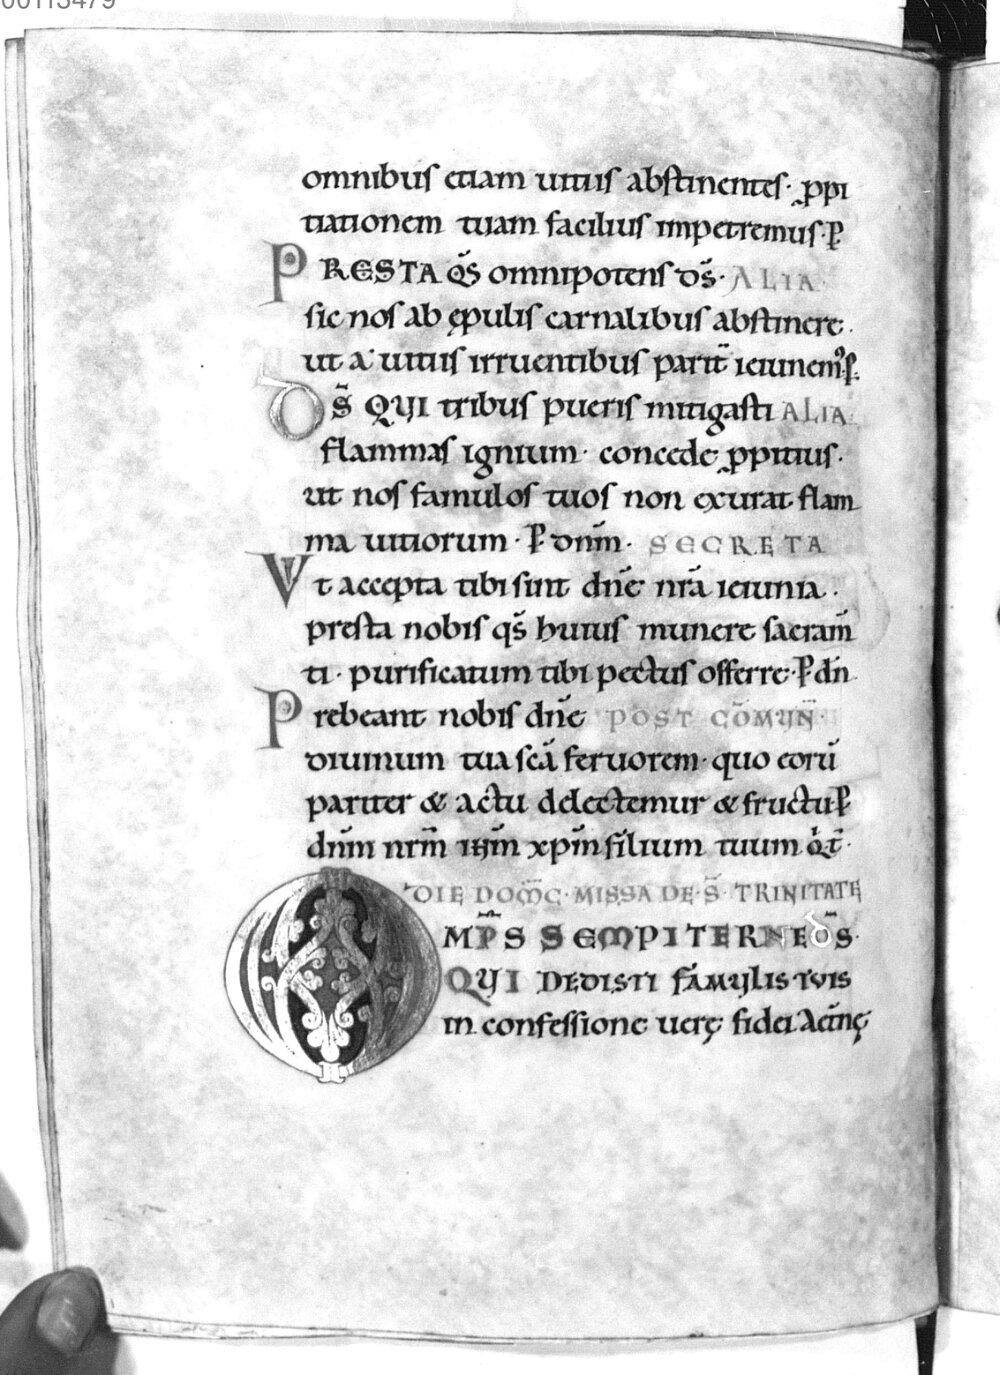 00113479
omnibus etiam uitiis abstinentes· ꝓpi
tiationem tuam facilius impetremus· ꝑ
PRESTA Q̄S omnipotens d̄s· ALIA·
sic nos ab ępulis carnalibus abstinere·
ut a uitiis irruentibus parit̄ ieiunem᷒· ꝑ
D̄S QUI tribus pueris mitigasti ALIA
flammas ignium· concede ꝓpitius·
ut nos famulos tuos non exurat flam
ma uitiorum· ꝑ dn̄m· SECRETA
Vt accepta tibi sint dn̄e nr̄a ieiunia·
presta nobis q̄s huius munere sacram̄
ti· purificatum tibi pectus offerre· ꝑ dn̄
Prebeant nobis dn̄e POST COM̄UN̄·
diuinum tua sc̄a feruorem· quo eorū
pariter & actu delectemur & fructu ꝑ
dn̄m nr̄m ih̄m xp̄m filium tuum q̄ t̄·
DIE DOM̄C· MISSA DE· S̄· TRINITATE
OMP̄S SEMPITERNE D̄S·
QUI DEDISTI FAMULIS TUIS
in confessione uerę fidei ętn̄ę